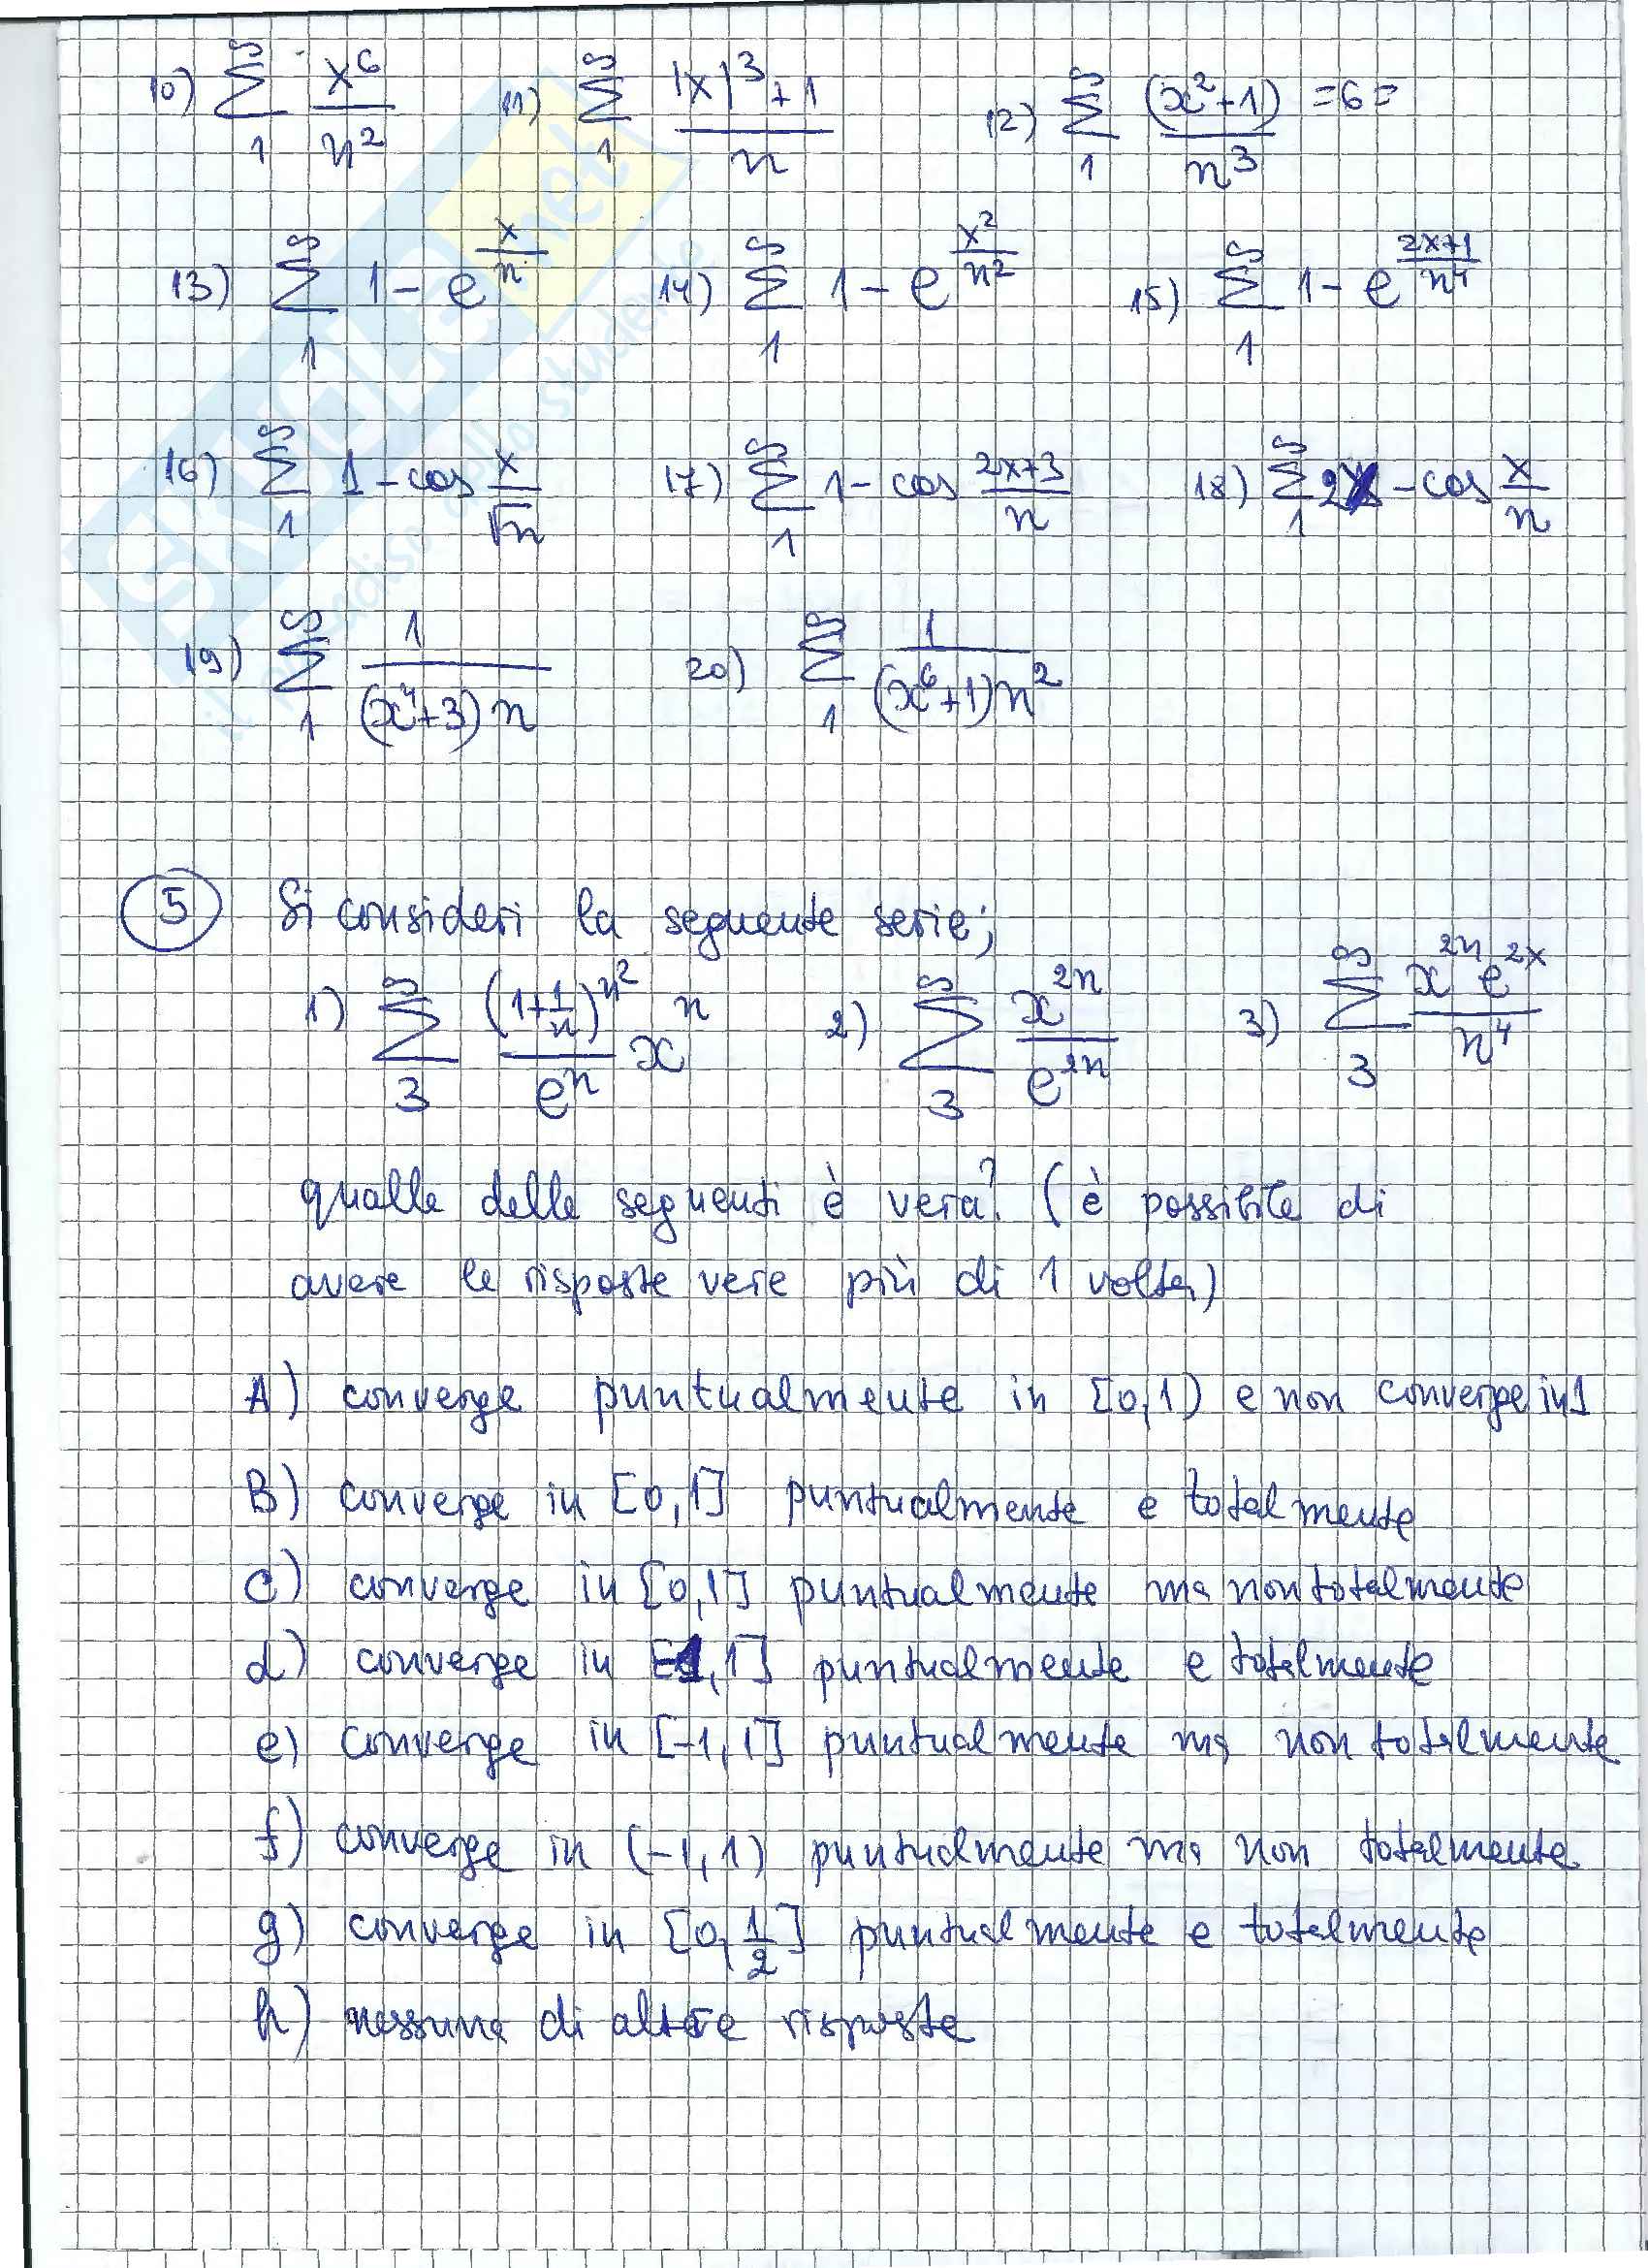 10) ∑₁^∞ x⁶/n² 11) ∑₁^∞ (|x|³+1)/n 12) ∑₁^∞ (x²+1)/n³ =6=
13) ∑₁^∞ 1-e^(x/n) 14) ∑₁^∞ 1-e^(x²/n²) 15) ∑₁^∞ 1-e^((2x+1)/n⁴)
16) ∑₁^∞ 1-cos x/√n 17) ∑₁^∞ 1-cos (2x+3)/n 18) ∑₁^∞ -cos x/n
19) ∑₁^∞ 1/((x⁴+3)n) 20) ∑₁^∞ 1/((x⁶+1)n²)
5 Si consideri la seguente serie;
1) ∑₃^∞ ((1+1/n)^(n²)/eⁿ) xⁿ 2) ∑₃^∞ x²ⁿ/e²ⁿ 3) ∑₃^∞ x²ⁿe²ˣ/n⁴
qualle delle seguenti è vera? (è possibile di
avere le risposte vere più di 1 volta)
A) converge puntualmente in [0,1) e non converge in 1
B) converge in [0,1] puntualmente e totalmente
c) converge in [0,1] puntualmente ma non totalmente
d) converge in [-1,1] puntualmente e totalmente
e) converge in [-1,1] puntualmente ma non totalmente
f) converge in (-1,1) puntualmente ma non totalmente
g) converge in [0,1/2] puntualmente e totalmente
h) nessuna di altre risposte
SKUOLA.net
il paradiso dello studente